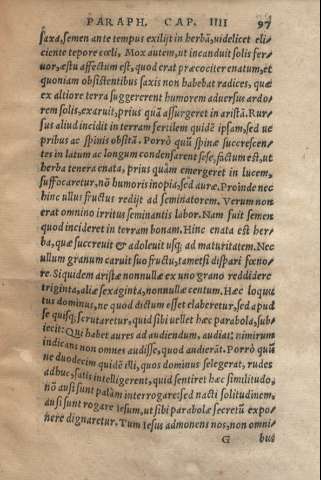 PARAPH. CAP. IIII 97
saxa, semen ante tempus exilijt in herbã, uidelicet eli-
ciente tepore cœli. Mox autem, ut incanduit solis fer-
uor, æstu affectum est, quod erat præcociter enatum, et
quoniam obsistentibus saxis non habebat radices, quæ
ex altiore terra suggererent humorem aduersus ardo-
rem solis, exaruit, prius quã assurgeret in aristã. Rur-
sus aliud incidit in terram fertilem quidẽ ipsam, sed ue
pribus ac spinis obsitã. Porrò quũ spinæ succrescen-
tes in latum ac longum condensarent sese, factum est, ut
herba tenera enata, prius quàm emergeret in lucem,
suffocaretur, nõ humoris inopia, sed auræ. Proinde nec
hinc ullus fructus redijt ad seminatorem. Verum non
erat omnino irritus seminantis labor. Nam fuit semen
quod incideret in terram bonam. Hinc enata est her-
ba, quæ succreuit & adoleuit usq; ad maturitatem. Nec
ullum granum caruit suo fructu, tametsi dispari fœno-
re. Siquidem aristæ nonnullæ ex uno grano reddidere
triginta, aliæ sexaginta, nonnullæ centum. Hæc loquu
tus dominus, ne quod dictum esset elaberetur, sed apud
se quisq; scrutaretur, quid sibi uellet hæc parabola, sub-
iecit: Qui habet aures ad audiendum, audiat: nimirum
indicans non omnes audisse, quod audierãt. Porrò quũ
ne duodecim quidẽ illi, quos dominus selegerat, rudes
adhuc, satis intelligerent, quid sentiret hæc similitudo,
nõ ausi sunt palàm interrogare: sed nacti solitudinem,
ausi sunt rogare Iesum, ut sibi parabolæ secretũ expo-
nere dignaretur. Tum Iesus admonens nos, non omni-
G bus